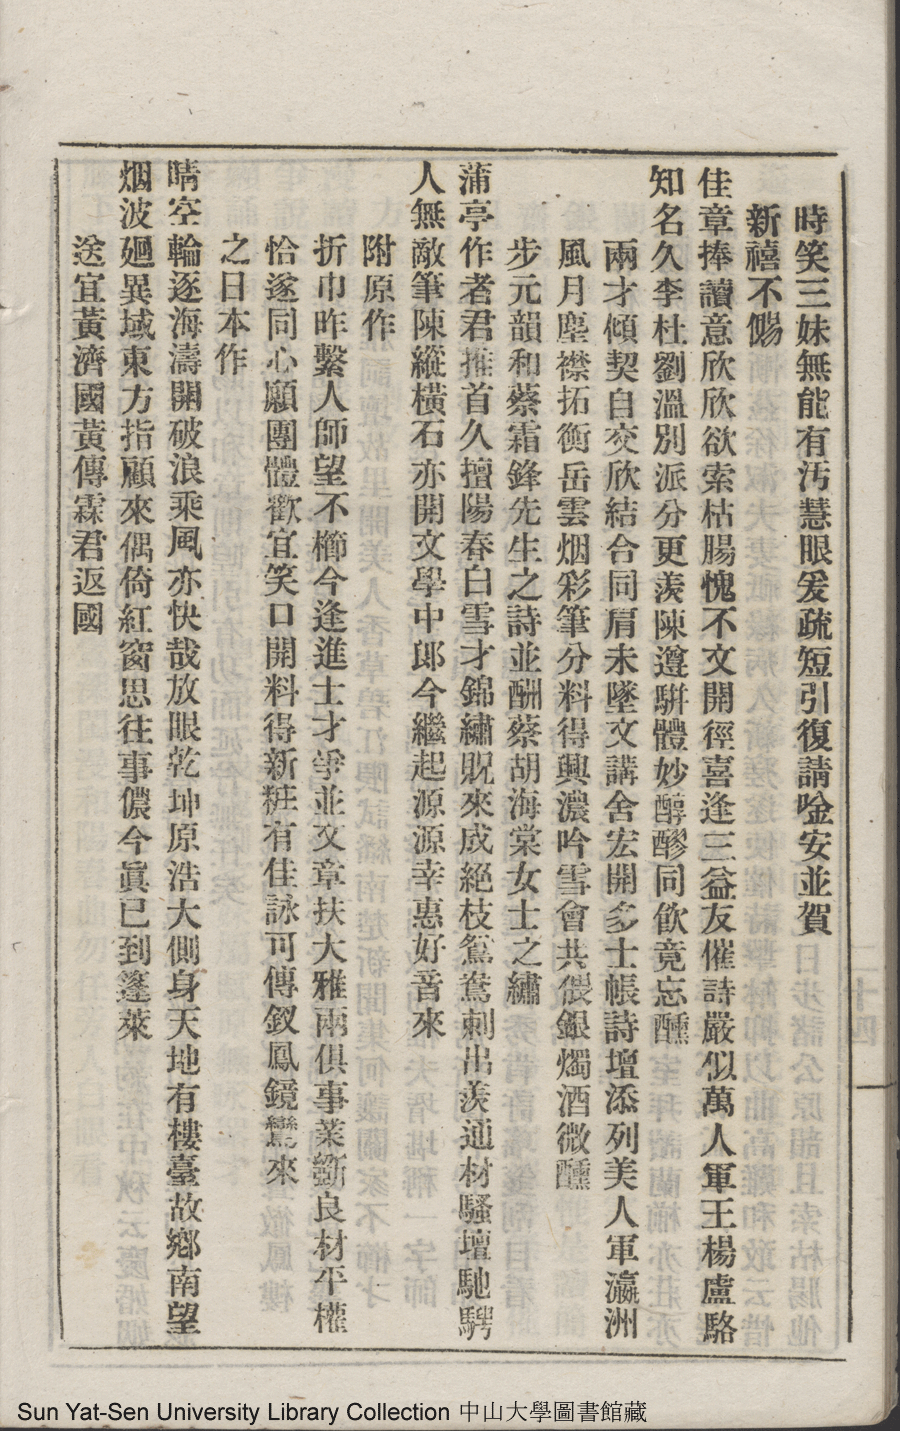 時笑三妹無能有汚慧眼爰疏短引復請唫安並賀
新禧不備
佳章捧讀意欣欣欲索枯腸愧不文開徑喜逢三益友催詩嚴似萬人軍王楊盧駱
知名久李杜劉溫別派分更羨陳遵駢體妙醇醪同飲竟忘醺
兩才傾契自交欣結合同肩未墜文講舍宏開多士帳詩壇添列美人軍瀛洲
風月塵襟拓衡岳雲烟彩筆分料得興濃吟雪會共偎銀燭酒微醺
步元韻和蔡霜鋒先生之詩並酬蔡胡海棠女士之繡
蒲亭作者君推首久擅陽春白雪才錦繡貺來成絕枝鴛鴦刺出羨通材騷壇馳騁
人無敵筆陳縱橫石亦開文學中郎今繼起源源幸惠好音來
附原作
折巾昨繫人師望不櫛今逢進士才爭並文章扶大雅兩俱事業斷良材平權
恰遂同心願團體歡宜笑口開料得新粧有佳詠可傳釵鳳鏡鸞來
之日本作
晴空輪逐海濤開破浪乘風亦快哉放眼乾坤原浩大側身天地有樓臺故鄉南望
烟波廻異域東方指顧來偶倚紅窗思往事儂今眞已到蓬萊
送宜黃濟國黃傳霖君返國
Sun Yat-Sen University Library Collection 中山大學圖書館藏